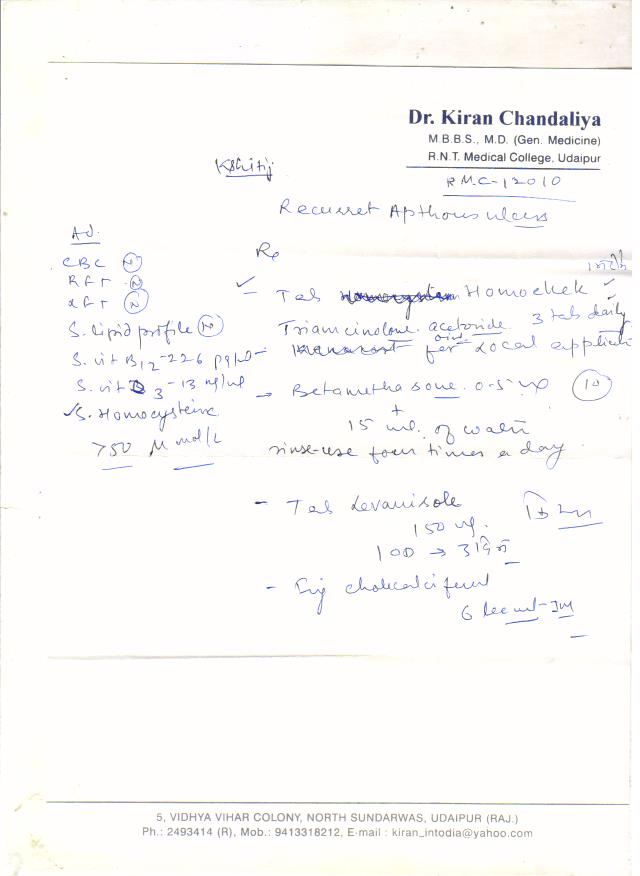 Dr. Kiran Chandaliya
M.B.B.S., M.D. (Gen. Medicine)
R.N.T. Medical College, Udaipur
RMC-12010
Kshitij
Recurret Apthous ulcers
Ad.
CBC (N)
RFT (N)
LFT (N)
S. lipid profile (N)
S. vit B12 - 226 pg/ml
S. vit D3 - 13 ng/ml
S. Homocysteine
>50 μ mol/L
Rx
- Tab Homochek
3 tab daily
Triamcinolone acetonide
oint for Local application
→ Betamethasone 0.5 mg (10)
+
15 ml. of water
rinse-use four times a day
- Tab Levamisole
150 mg.
1 OD → 3 दिन
- Inj cholecalciferol
6 lac unit - IM
5, VIDHYA VIHAR COLONY, NORTH SUNDARWAS, UDAIPUR (RAJ.)
Ph.: 2493414 (R), Mob.: 9413318212, E-mail : kiran_intodia@yahoo.com